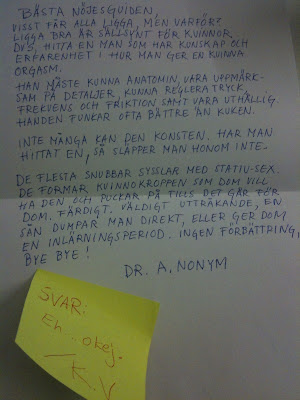 BÄSTA NÖJESGUIDEN
VISST FÅR ALLA LIGGA, MEN VARFÖR?
LIGGA BRA ÄR SÄLLSYNT FÖR KVINNOR.
DVS, HITTA EN MAN SOM HAR KUNSKAP OCH
ERFARENHET I HUR MAN GER EN KVINNA
ORGASM.
HAN MÅSTE KUNNA ANATOMIN, VARA UPPMÄRK-
SAM PÅ DETALJER, KUNNA REGLERA TRYCK,
FREKVENS OCH FRIKTION SAMT VARA UTHÅLLIG.
HANDEN FUNKAR OFTA BÄTTRE ÄN KUKEN.
INTE MÅNGA KAN DEN KONSTEN. HAR MAN
HITTAT EN, SÅ SLÄPPER MAN HONOM INTE.
DE FLESTA SNUBBAR SYSSLAR MED STATIV-SEX.
DE FORMAR KVINNOKROPPEN SOM DOM VILL
HA DEN OCH PUCKAR PÅ TILLS DET GÅR FÖR
DOM. FÄRDIGT. VÄLDIGT UTTRÅKANDE, EN
SÅN DUMPAR MAN DIREKT, ELLER GER DOM
EN INLÄRNINGSPERIOD. INGEN FÖRBÄTTRING,
BYE BYE!
DR. A. NONYM
SVAR:
Eh...okej.
—K.V